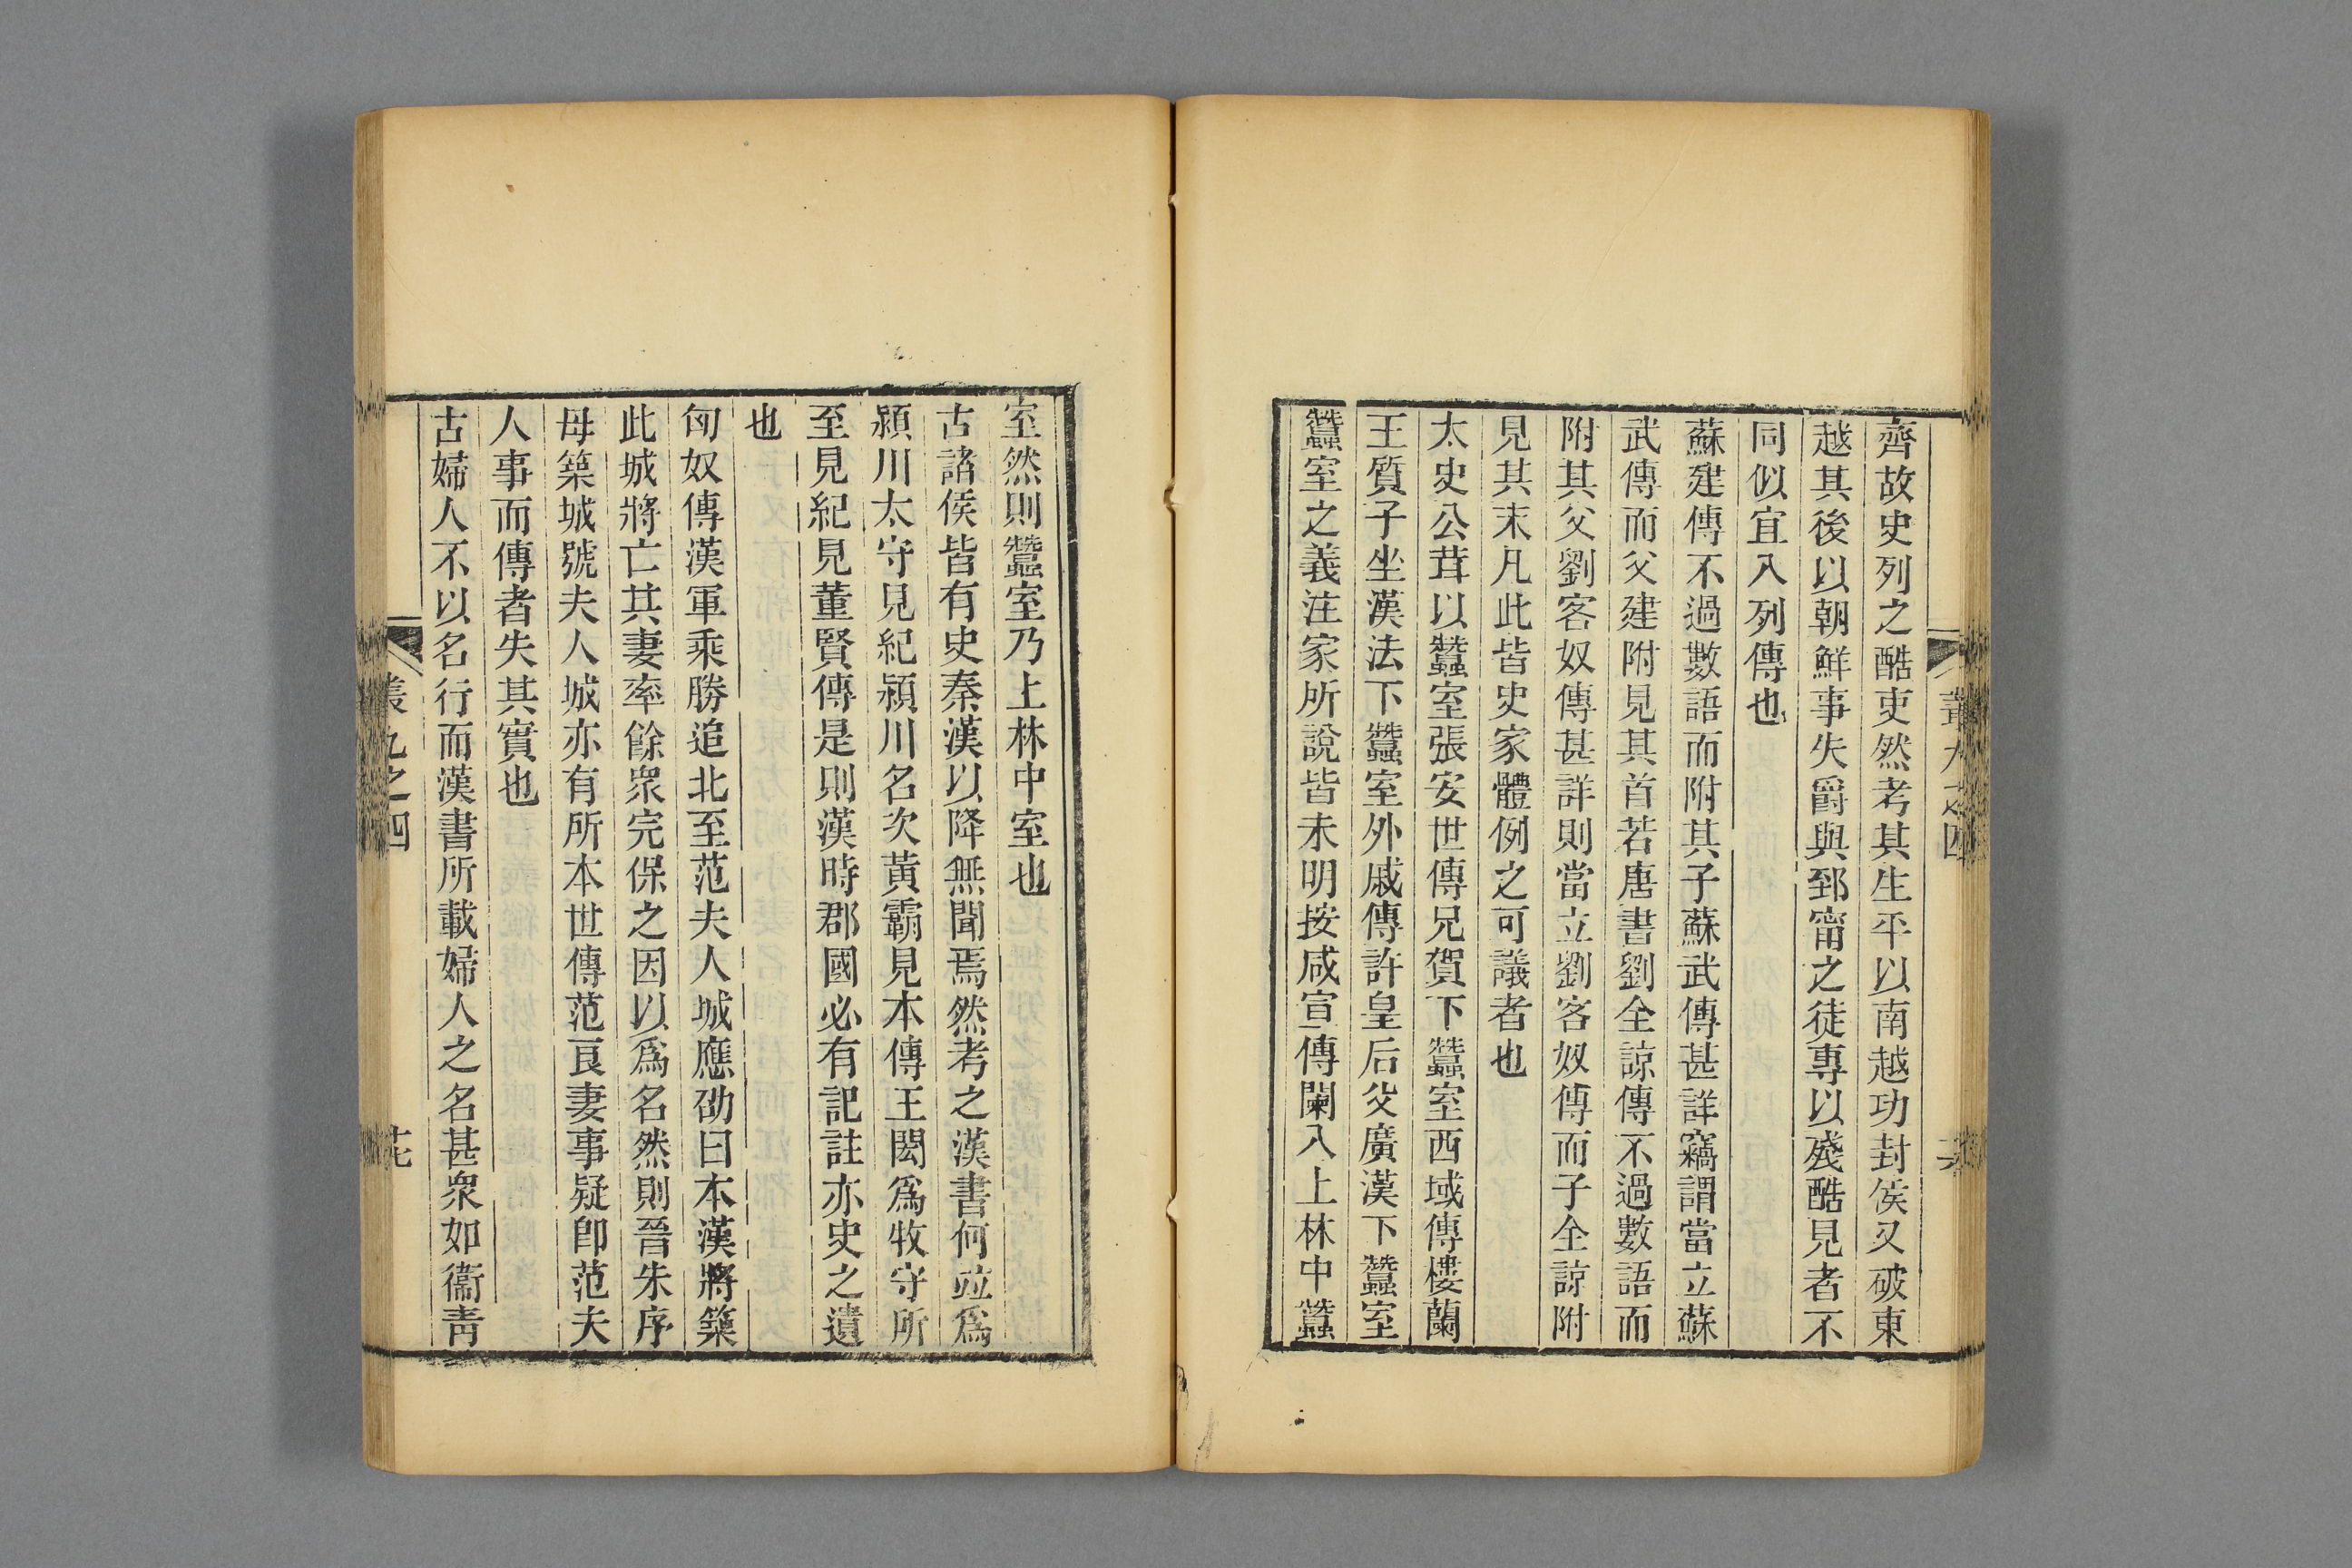 齊故史列之酷吏然考其生平以南越功封侯又破東
越其後以朝鮮事失爵與郅甯之徒專以殘酷見者不
同似宜入列傳也
蘇建傳不過數語而附其子蘇武傳甚詳竊謂當立蘇
武傳而父建附見其首若唐書劉全諒傳不過數語而
附其父劉客奴傳甚詳則當立劉客奴傅而子全諒附
見其末凡此皆史家體例之可議者也
太史公茸以蠶室張安世傳兄賀下蠶室西域傳樓蘭
王質子坐漢法下蠶室外戚傳許皇后父廣漢下蠶室
蠶室之義注家所說皆未明按咸宣傳闌入上林中蠶
室然則蠶室乃上林中室也
古諸侯皆有史秦漢以降無聞焉然考之漢書何竝爲
潁川太守見紀潁川名次黃霸見本傳王閎爲牧守所
至見紀見董賢傳是則漢時郡國必有記註亦史之遺
也
匈奴傳漢軍乘勝追北至范夫人城應劭曰本漢將築
此城將亡其妻率餘衆完保之因以爲名然則晉朱序
母築城號夫人城亦有所本世傳范良妻事疑卽范夫
人事而傳者失其實也
古婦人不以名行而漢書所載婦人之名甚衆如衞靑